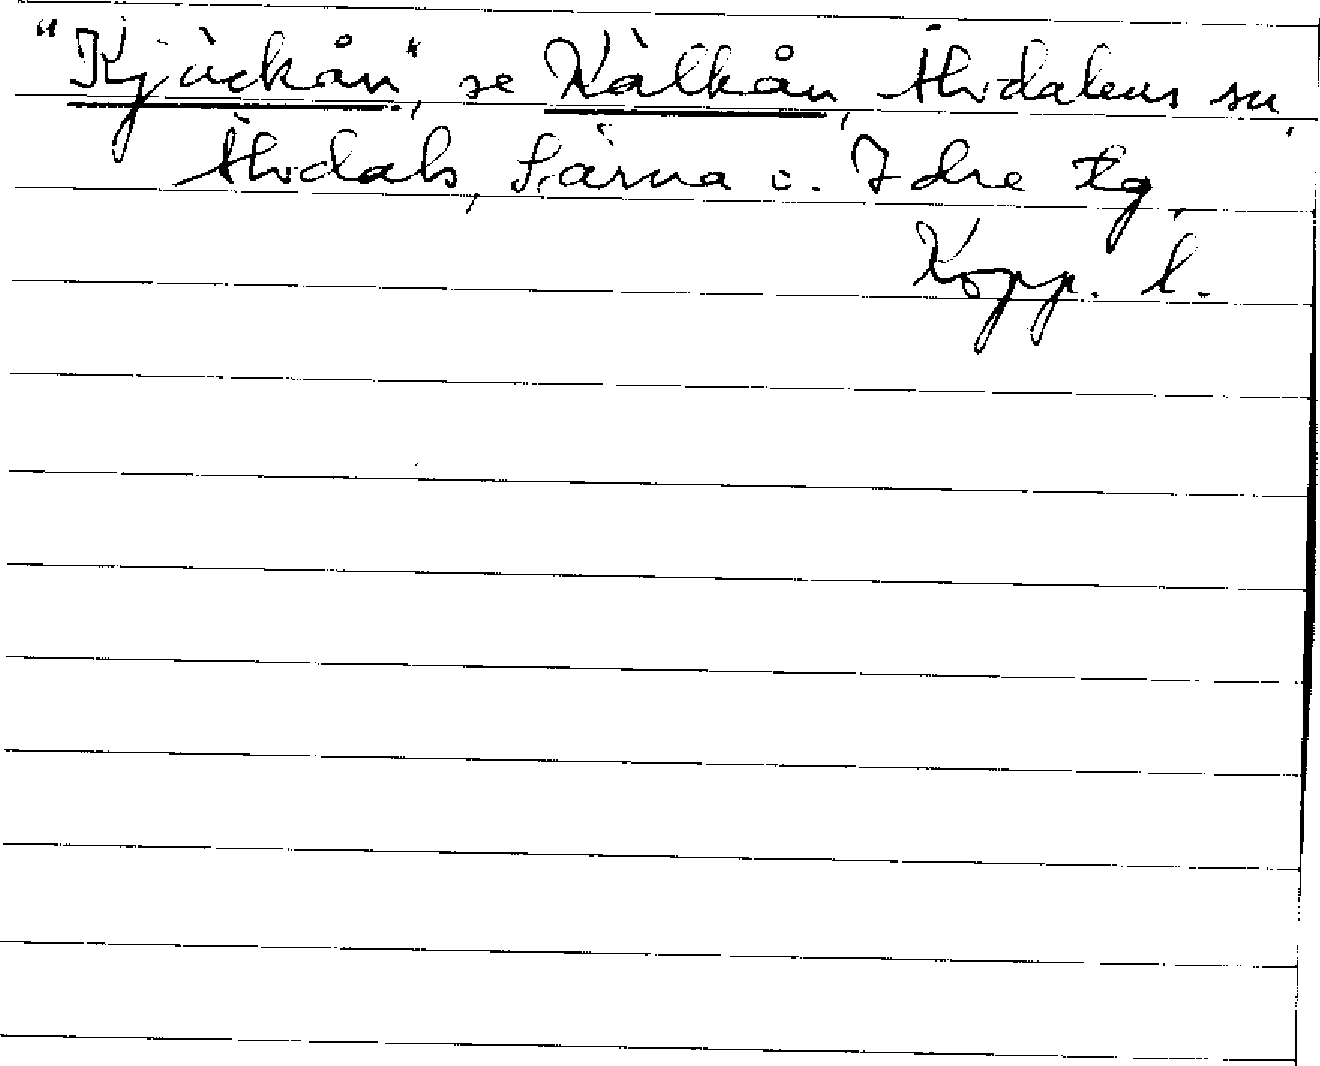 "Kjùckån", se Kàlkån, Älvdalens sn,
Älvdals, Särna o. Idre tg,
Kopp. l.